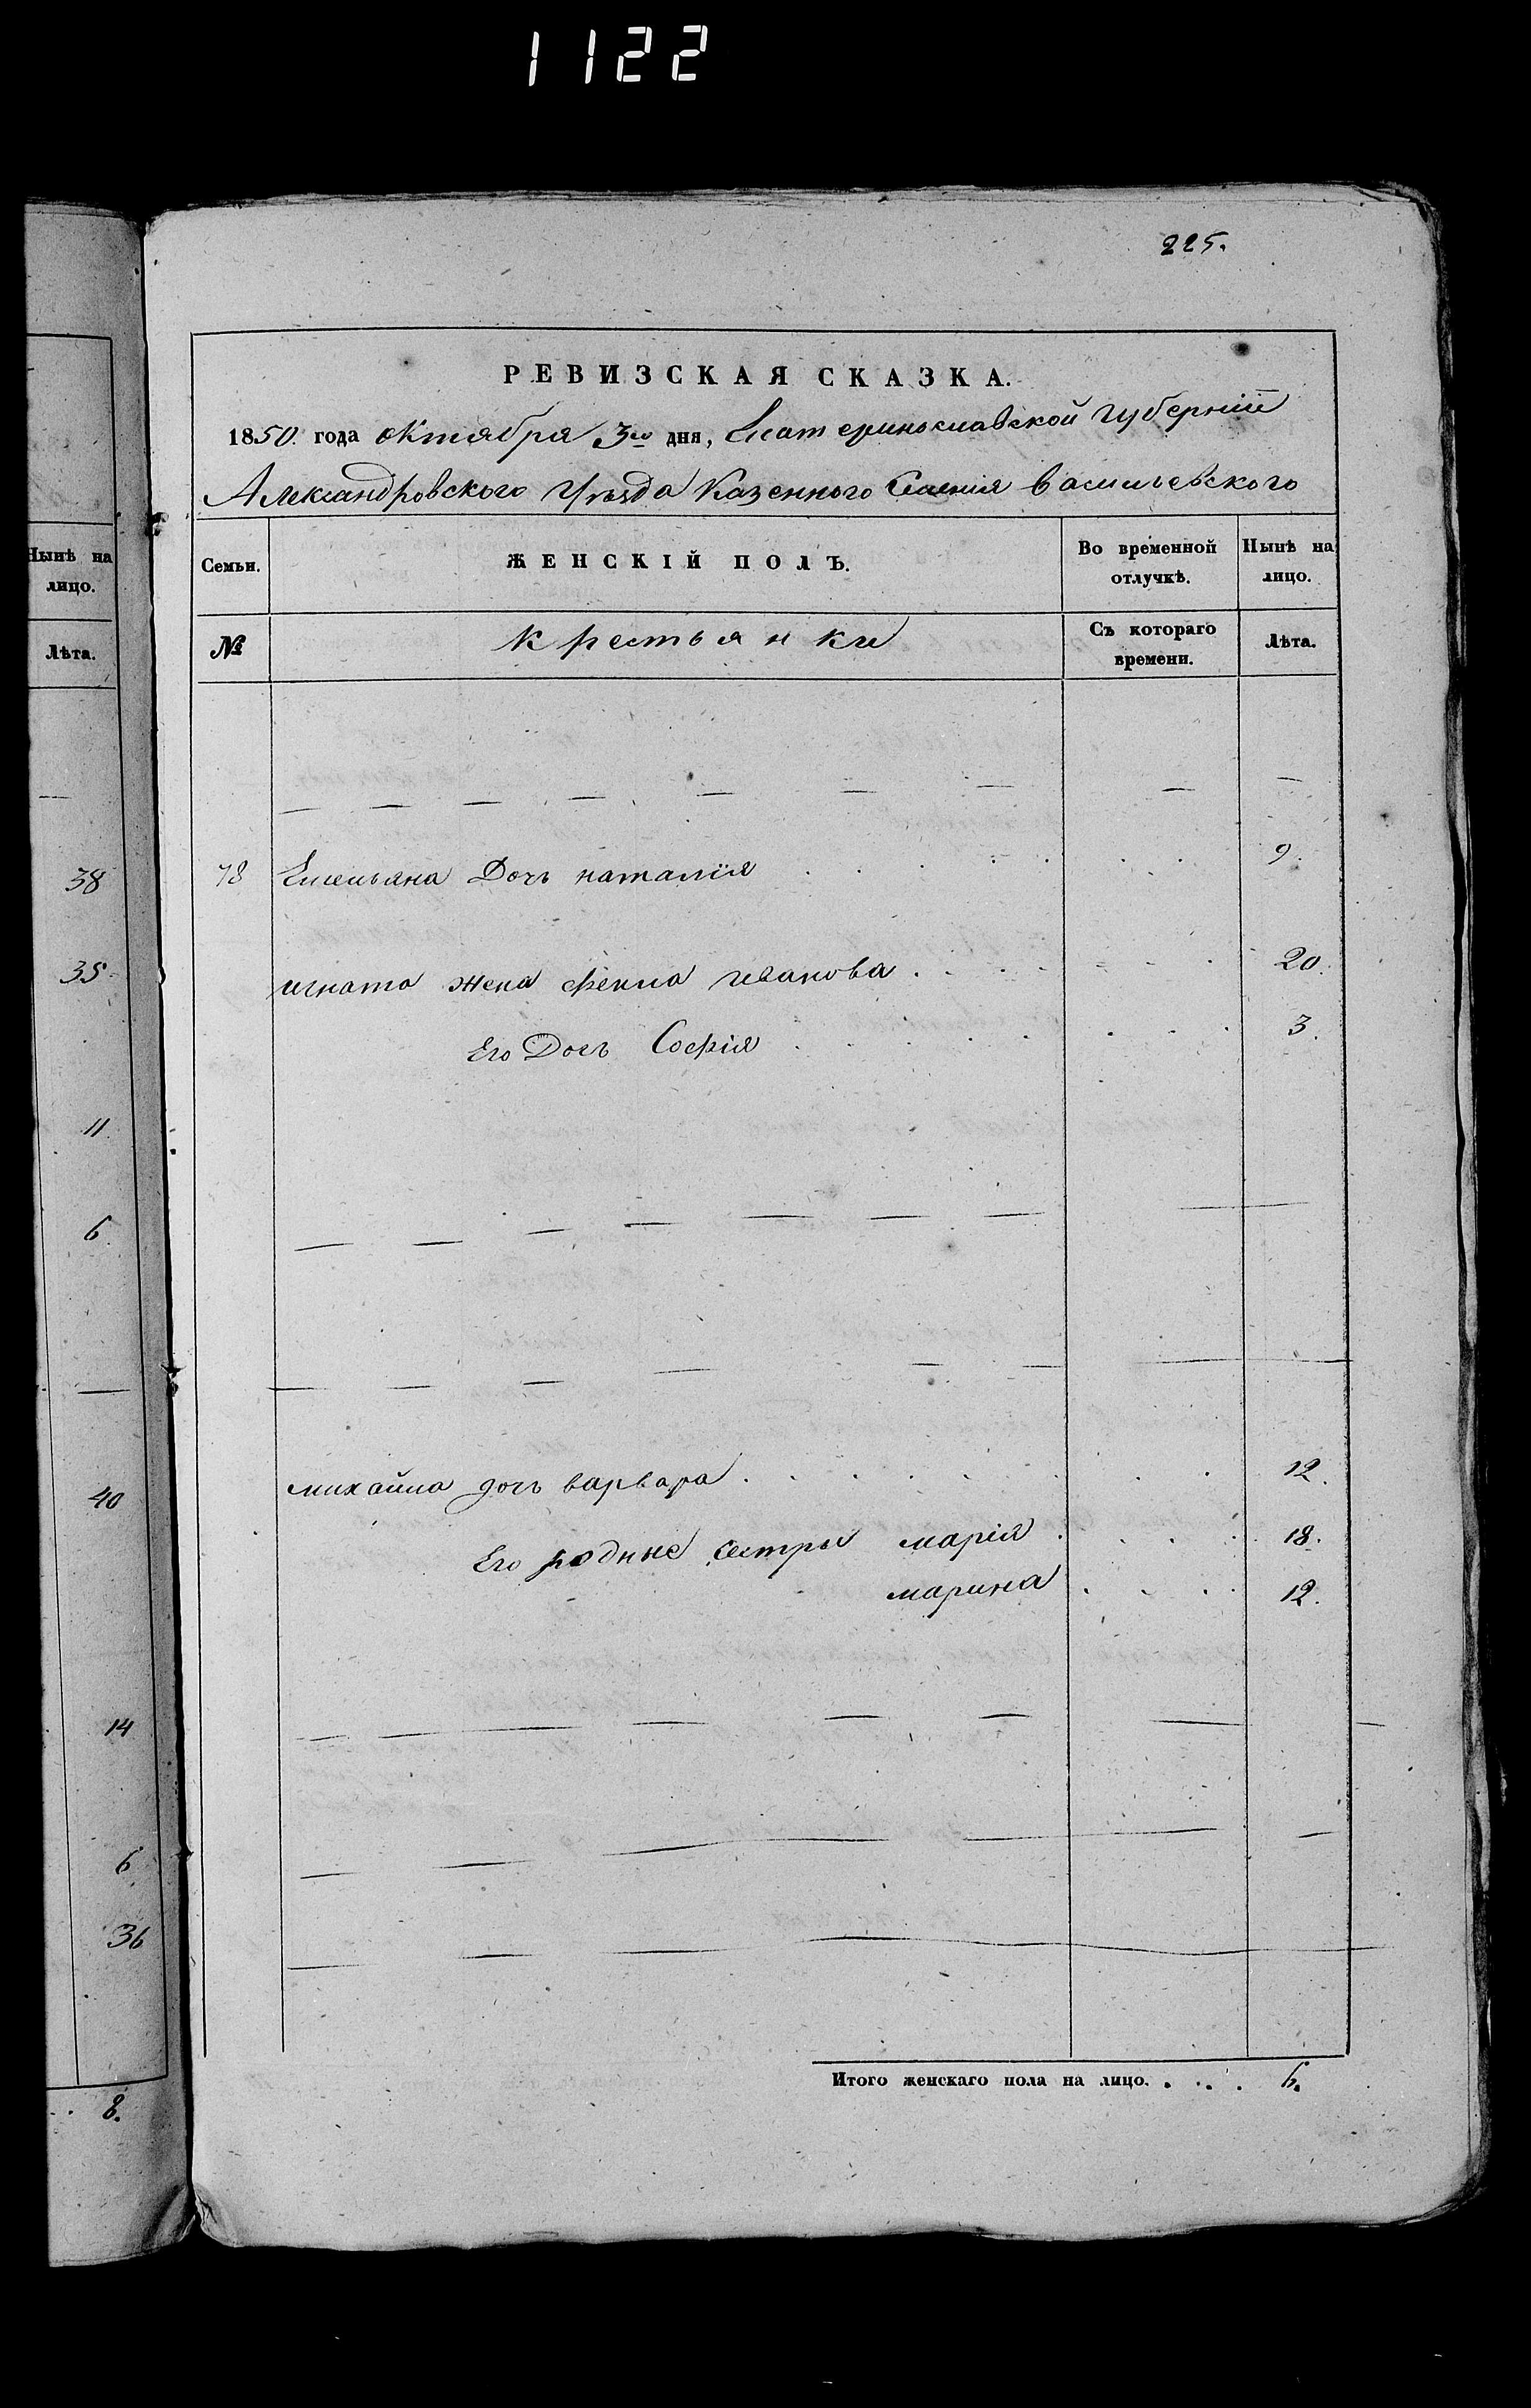 1122
225.
Нынѣ на
лицо.
Лѣта.
38
35
11.
6.
40
14
6.
36
8.
РЕВИЗСКАЯ СКАЗКА.
1850. года октября 3го дня, Екатеринославской губерніи
Александровского Уѣзда Казенного Селенія васильевского
Семьи. ЖЕНСКІЙ ПОЛЪ. Во временной отлучкѣ. Нынѣ на лицо.
№ крестьянки Съ котораго времени. Лѣта.
78 Емельяна Дочь наталія 9.
игната жена фекла иванова 20.
Его Дочь Софія 3.
михайла дочь варвара 12.
Его родные сестры марія 18.
марина 12.
Итого женскаго пола на лицо. 6.